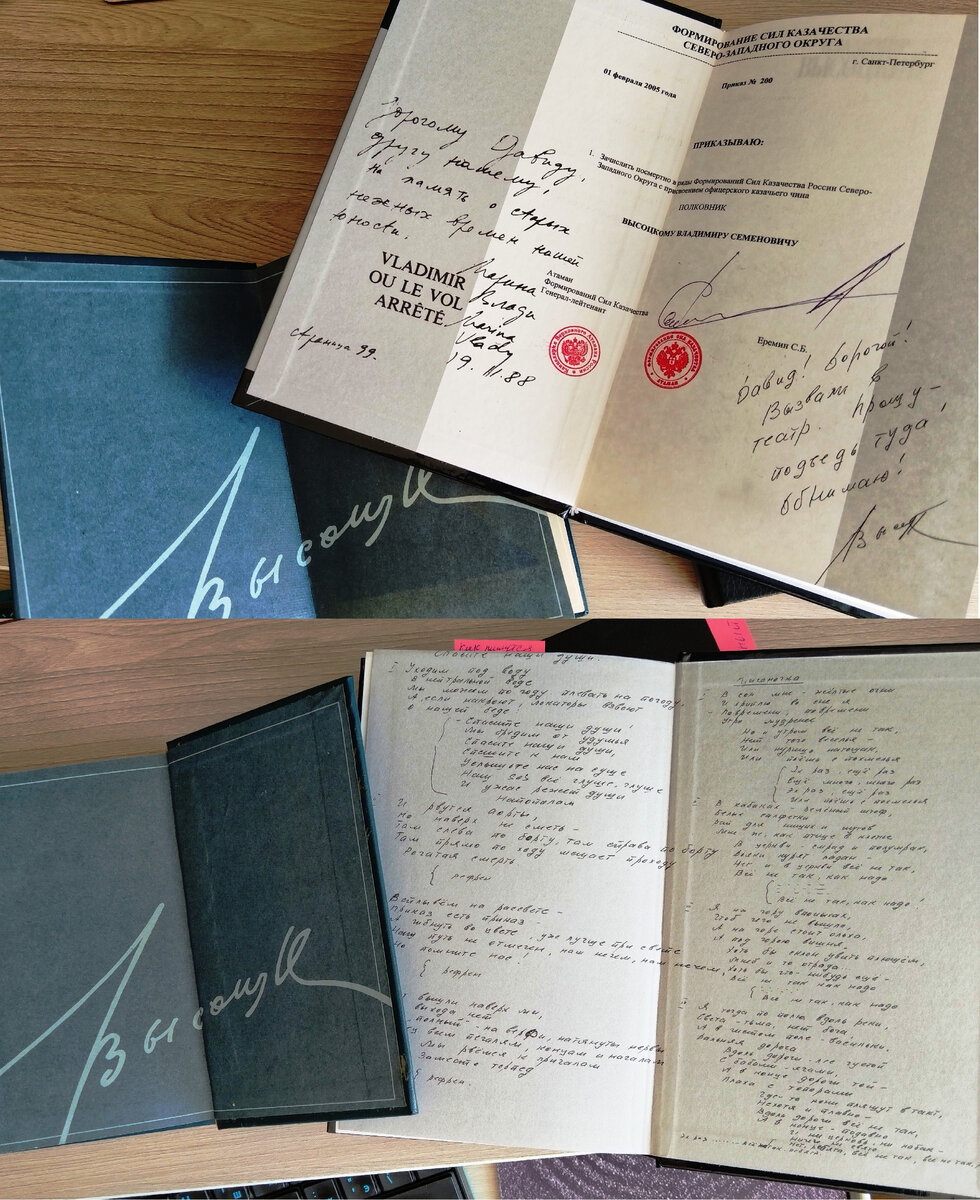 Дорогому Давиду,
другу нашему,
на память о старых
нежных времен нашей
юности.
Марина
Влади
Marina
Vlady
19.XI.88
VLADIMIR
OU LE VOL
ARRÊTÉ
страница 99.
ФОРМИРОВАНИЕ СИЛ КАЗАЧЕСТВА
СЕВЕРО-ЗАПАДНОГО ОКРУГА
г. Санкт-Петербург
01 февраля 2005 года
Приказ № 200
ПРИКАЗЫВАЮ:
1. Зачислить посмертно в ряды Формирований Сил Казачества России Северо-
Западного Округа с присвоением офицерского казачьего чина
ПОЛКОВНИК
ВЫСОЦКОМУ ВЛАДИМИРУ СЕМЕНОВИЧУ
Атаман
Формирований Сил Казачества
Генерал-лейтенант
Еремин С.Б.
Давид! Дорогой!
Вызвали в
театр. Прошу -
подъедь туда!
Обнимаю!
Высоц
Высоцк
Спасите наши души.
I. Уходим под воду
В нейтральной воде
Мы можем по году плевать на погоду.
А если накроют, локаторы взвоют
О нашей беде!
Спасите наши души!
Мы бредим от удушья
Спасите наши души,
Спешите к нам
Услышьте нас на суше
Наш SOS всё глуше, глуше
И ужас режет души
Напополам
И рвутся аорты,
Но наверх не сметь -
Там слева по борту, там справа по борту
Там прямо по ходу мешает проходу
Рогатая смерть
{ рефрен
Всплывём на рассвете -
Приказ есть приказ
А гибнуть во цвете, уже лучше при свете
Наш путь не отмечен, нам нечем, нам нечем,
Но помните нас!
{ рефрен
вышли наверх мы,
выхода нет
полный на верфи, натянуты нервы
Конец всем печалям, концам и началам
Мы рвёмся к причалам
Заместо торпед
{ рефрен.
Цыганочка
В сон мне - жёлтые огни
И хриплю во сне я
- Повремени, повремени
Утро мудренее
Но и утром всё не так,
Нет того веселья -
Или куришь натощак,
Или пьёшь с похмелья
{ Эх раз, ещё раз
Ещё много, много раз
Эх раз, ещё раз
Или пьёшь с похмелья
В кабаках - зелёный штоф,
Белые салфетки
Рай для нищих и шутов
Мне ж, как птице в клетке
В церкви - смрад и полумрак,
Дьяки курят ладан -
Нет и в церкви всё не так,
Всё не так, как надо
Всё не так, как надо!
Я на гору впопыхах,
Чтоб чего не вышло,
А на горе стоит ольха,
А под горою вишня.
Хоть бы склон увить плющом,
Мне б и то отрада
Хоть бы что-нибудь ещё -
Всё не так как надо
{ Всё не так, как надо
Я тогда по полю, вдоль реки,
Света - тьма, нет бога
А в чистом поле - васильки,
Дальняя дорога
Вдоль дороги - лес густой
С бабами - ягами,
А в конце дороги той -
Плаха с топорами
Где-то кони пляшут в такт,
Нехотя и плавно -
Вдоль дороги всё не так,
А в конце - подавно
И ни церковь, ни кабак -
Ничего не свято
Нет, ребята, всё не так, всё не так,
Высоцк